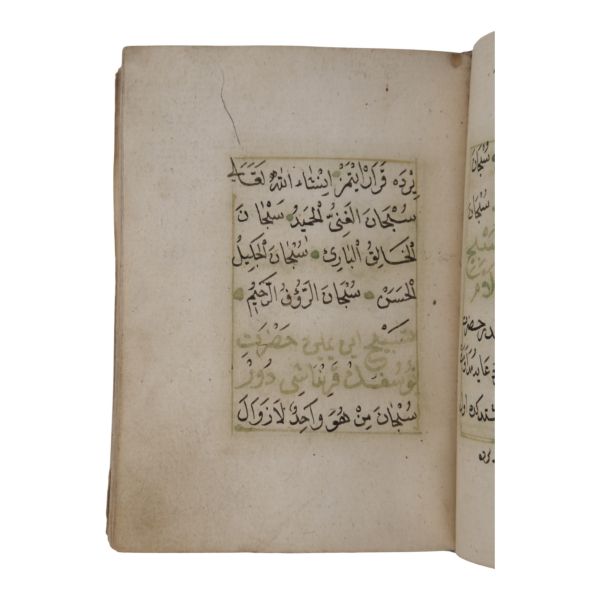 سُبْحَانَ
سُبْحَانَ
يِرْدَه قَرَارْ اِيتْمَزْ اِنْشَاءَ اللهُ تَعَالٰى
سُبْحَانَ الْغَنِيُّ الْحَمِيدُ سُبْحَانَ
الْخَالِقُ الْبَارِئُ سُبْحَانَ الْجَلِيلُ
الْحَسَنْ سُبْحَانَ الرَّؤُفُ الرَّحِيمُ
تسبيح ابن يمين حَضْرَتِ
يُوسُفكْ قرنداشى دورْ
سُبْحَانَ مِنْ هُوَ وَاحِدٌ لَازَوَالَ